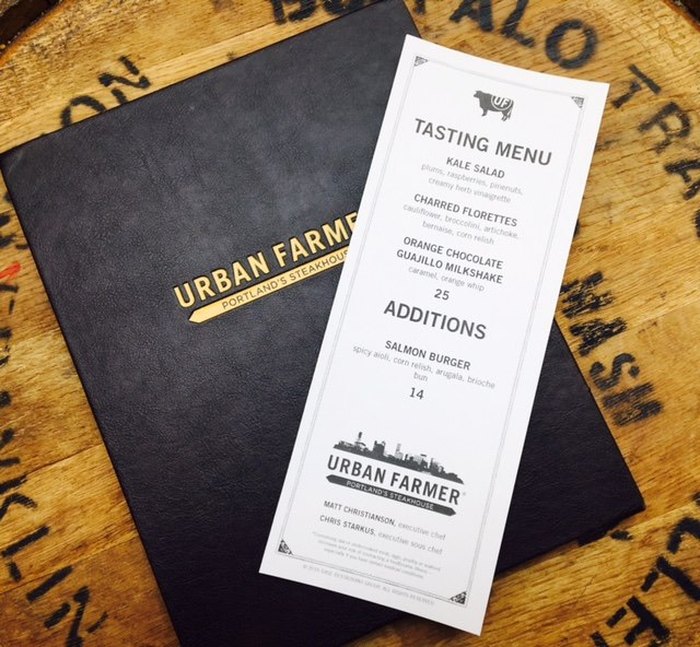 BUFFALO TRA
ON
URBAN FARMER
PORTLAND'S STEAKHOUSE
UF
TASTING MENU
KALE SALAD
plums, raspberries, pinenuts,
creamy herb vinaigrette
CHARRED FLORETTES
cauliflower, broccolini, artichoke,
bernaise, corn relish
ORANGE CHOCOLATE
GUAJILLO MILKSHAKE
caramel, orange whip
25
ADDITIONS
SALMON BURGER
spicy aioli, corn relish, arugala, brioche
bun
14
URBAN FARMER®
PORTLAND'S STEAKHOUSE
MATT CHRISTIANSON, executive chef
CHRIS STARKUS, executive sous chef
WASH
KLIN
CLE